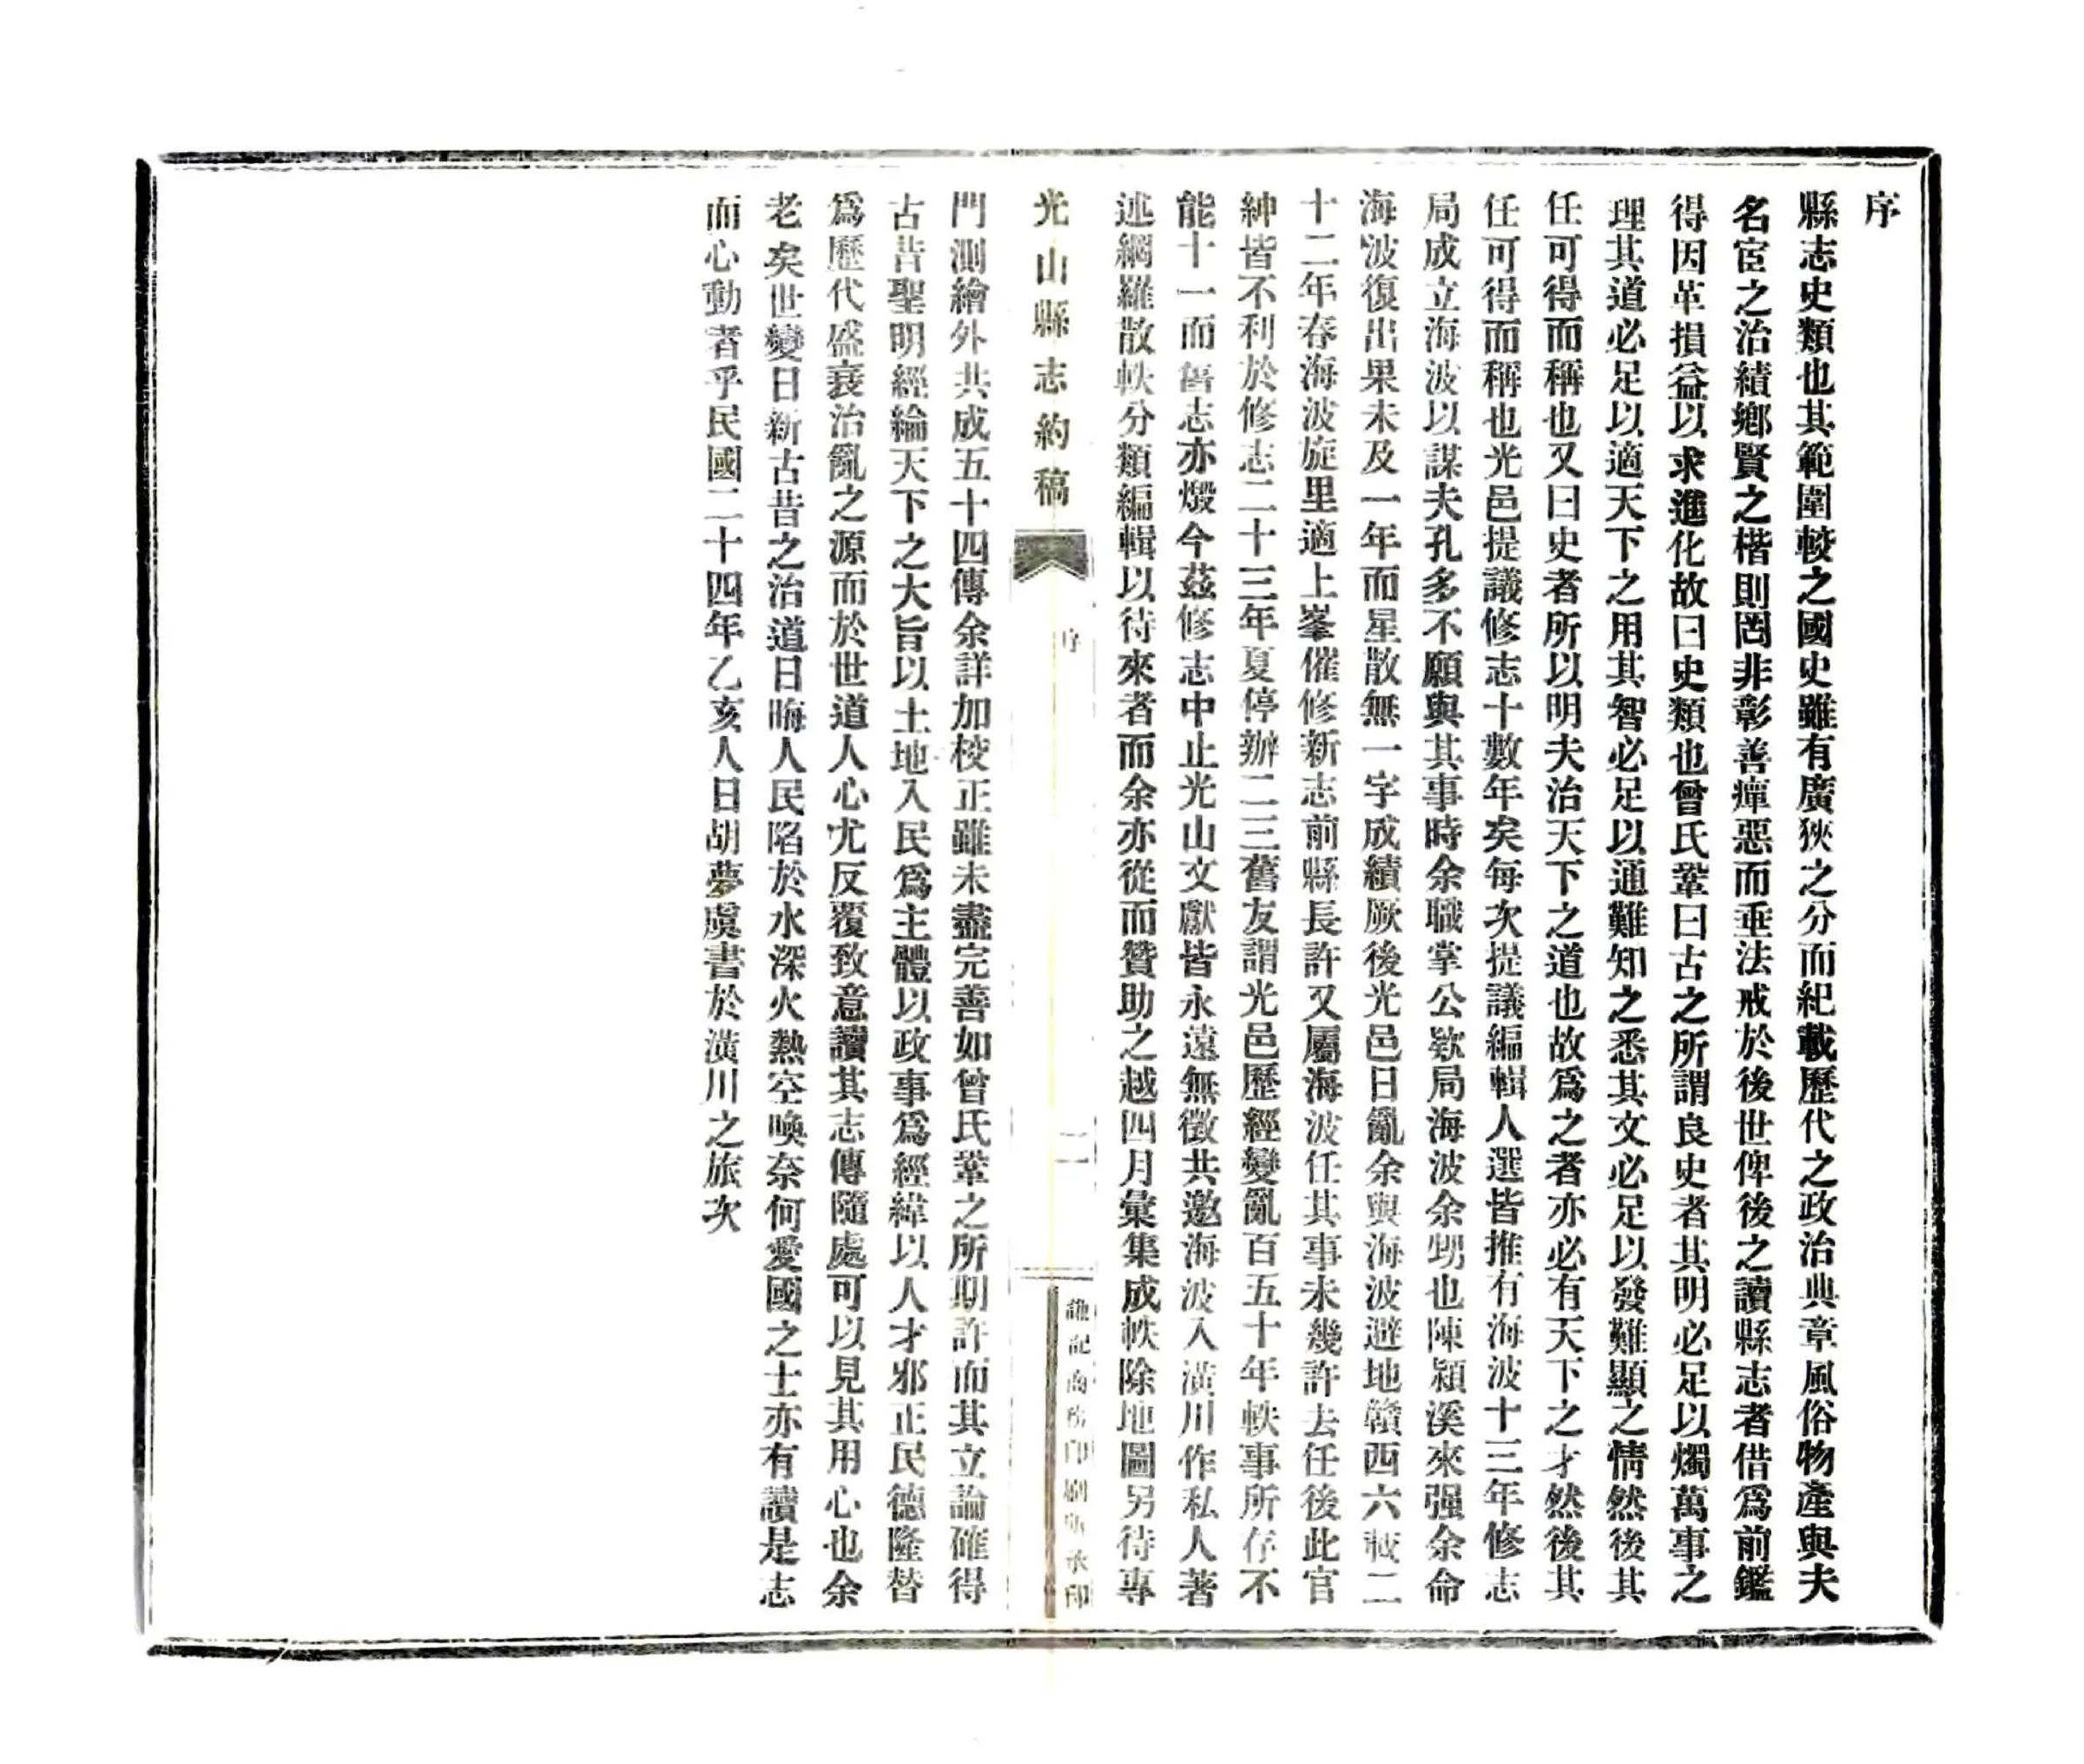 序
縣志史類也其範圍較之國史雖有廣狹之分而紀載歷代之政治典章風俗物產與夫
名宦之治績鄉賢之楷則罔非彰善癉惡而垂法戒於後世俾後之讀縣志者借爲前鑑
得因革損益以求進化故曰史類也曾氏鞏曰古之所謂良史者其明必足以燭萬事之
理其道必足以適天下之用其智必足以通難知之悉其文必足以發難顯之情然後其
任可得而稱也又曰史者所以明夫治天下之道也故爲之者亦必有天下之才然後其
任可得而稱也光邑提議修志十數年矣每次提議編輯人選皆推有海波十三年修志
局成立海波以謀夫孔多不願與其事時余職掌公欵局海波余甥也陳潁溪來强余命
海波復出果未及一年而星散無一字成績厥後光邑日亂余與海波避地贛西六載二
十二年春海波旋里適上峯催修新志前縣長許又屬海波任其事未幾許去任後此官
紳皆不利於修志二十三年夏停辦二三舊友謂光邑歷經變亂百五十年軼事所存不
能十一而舊志亦燬今茲修志中止光山文獻皆永遠無徵共邀海波入潢川作私人著
述網羅散軼分類編輯以待來者而余亦從而贊助之越四月彙集成帙除地圖另待專
光山縣志約稿
序
二
謙記商務印刷所承印
門測繪外共成五十四傳余詳加校正雖未盡完善如曾氏鞏之所期許而其立論確得
古昔聖明經綸天下之大旨以土地人民爲主體以政事爲經緯以人才邪正民德隆替
爲歷代盛衰治亂之源而於世道人心尤反覆致意讀其志傳隨處可以見其用心也余
老矣世變日新古昔之治道日晦人民陷於水深火熱空喚奈何愛國之士亦有讀是志
而心動者乎民國二十四年乙亥人日胡夢虞書於潢川之旅次